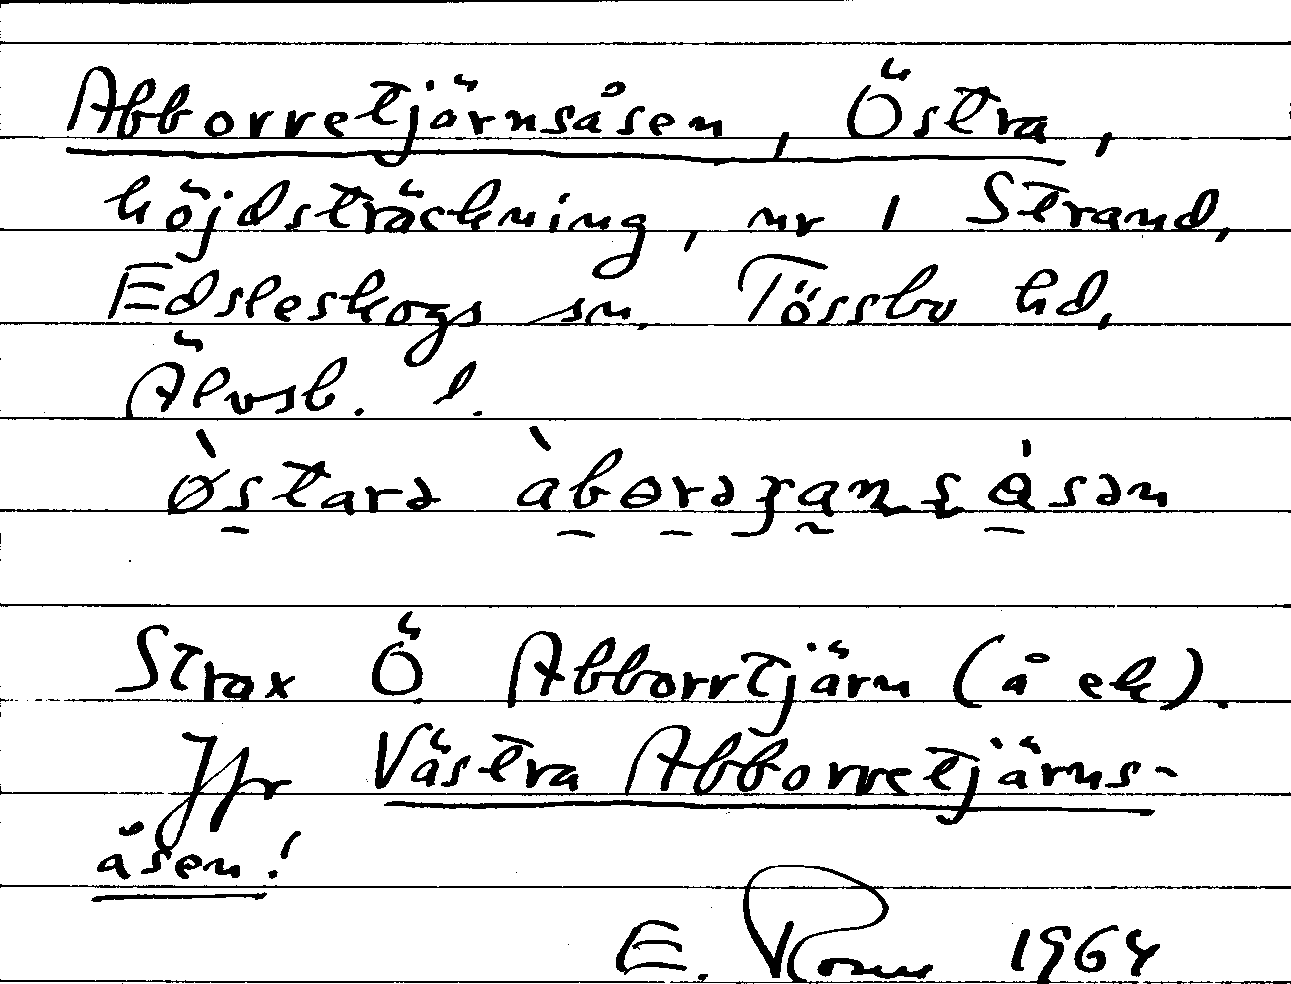 Abborretjärnsåsen, Östra,
höjdsträckning, nr 1 Strand,
Edsleskogs sn. Tössbo hd,
Älvsb. l.
Strax Ö Abborrtjärn (å ek).
Jfr Västra Abborretjärns-
åsen!
E. 1964